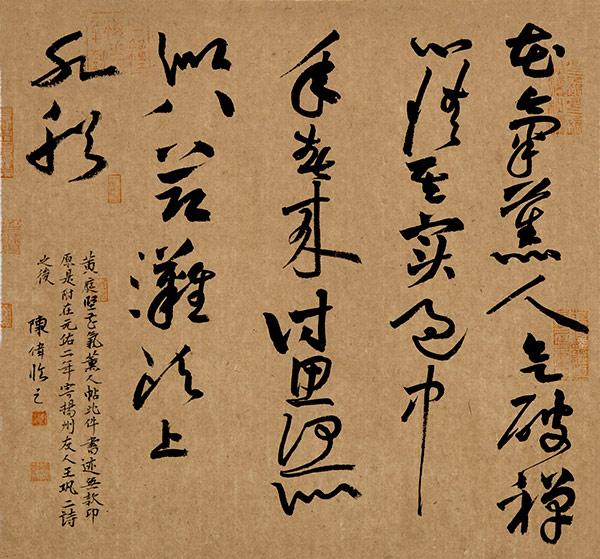 花氣薰人欲破禪
心情其實過中
年春來詩思何所
似八節灘頭上
水船
黄庭坚花氣薰人帖此件書迹无款印
原是附在元佑二年寄揚州友人王巩二詩
之後
陳偉臨之